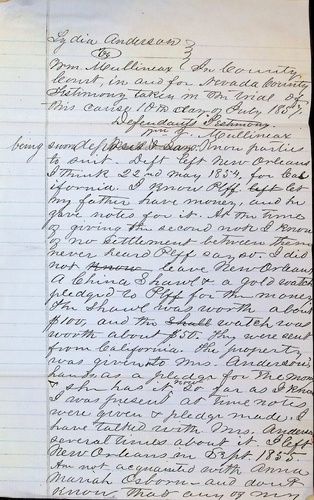 Lydia Anderson
vs
Wm. Mullineax In County
Court, in and for Nevada County
Testimony taken in the trial of
this cause 10th day of July 1857
Defendants Testimony
Wm J. Mullineax
being sworn dep Know parties
to suit. Deft left New Orleans
I think 22nd May 1854, for Cal
ifornia. I know Plff left let
my father have money, and he
gave notes for it. At the time
of giving the second note I know
of no settlement between them
never heard Plff say so. I did
not know leave New Orleans
a China Shawl & a gold watch
pledged to Plff for the money
the shawl was worth about
$100, and the shall watch was
worth about $50. They were sent
from California. The property
was given to Mrs. Anderson's
hands as a pledge for the mon
& she has it now so far as I know
I was present at time notes
were given & pledge made. I
have talked with Mrs. Anderson
several times about it I left
New Orleans in Sept 1855
Am not acquainted with Anna
Mariah Osborn - and don't
know that any of my